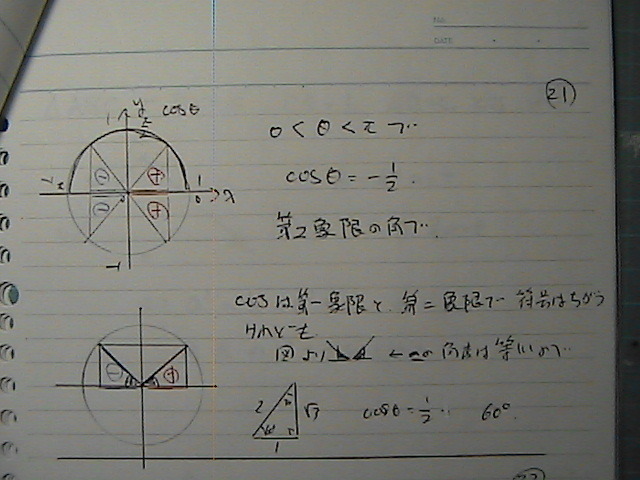 NO.
DATE
21
1 y cosθ
π/2
0 < θ < π で
-1 π
⊖ ⊕
0
1
0
x
cosθ = -1/2.
⊖ ⊕
第2象限の角で.
-1
cosは第一象限と、第二象限で 符号はちがう
けれども
図より ← の角度は等しいので
⊖ ⊕
2 √3
60°
1
cosθ = 1/2 … 60°.